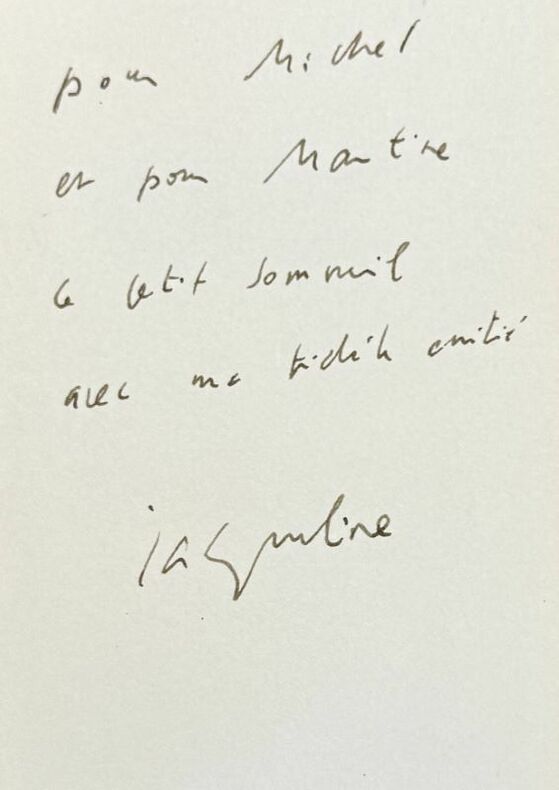 pour Michel
et pour Martine
ce petit sommeil
avec ma fidèle amitié
jacqueline